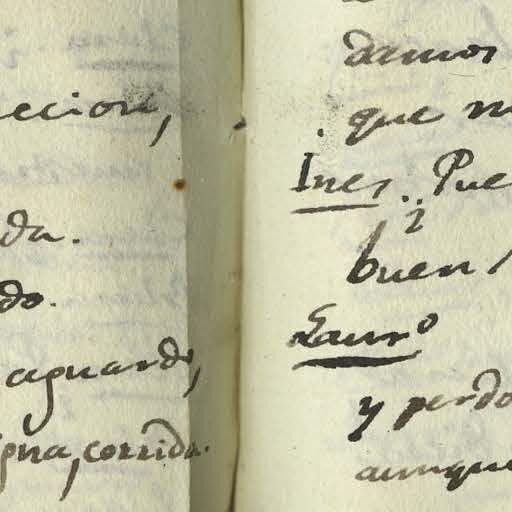 eccion,
da.
do.
aguardo,
corrida.
damos
que
Ines. Pue
buen
Laurº
y perdo
aunque